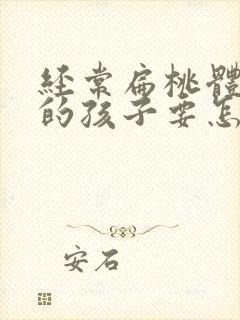 经常扁桃體
的孩子要怎
安石